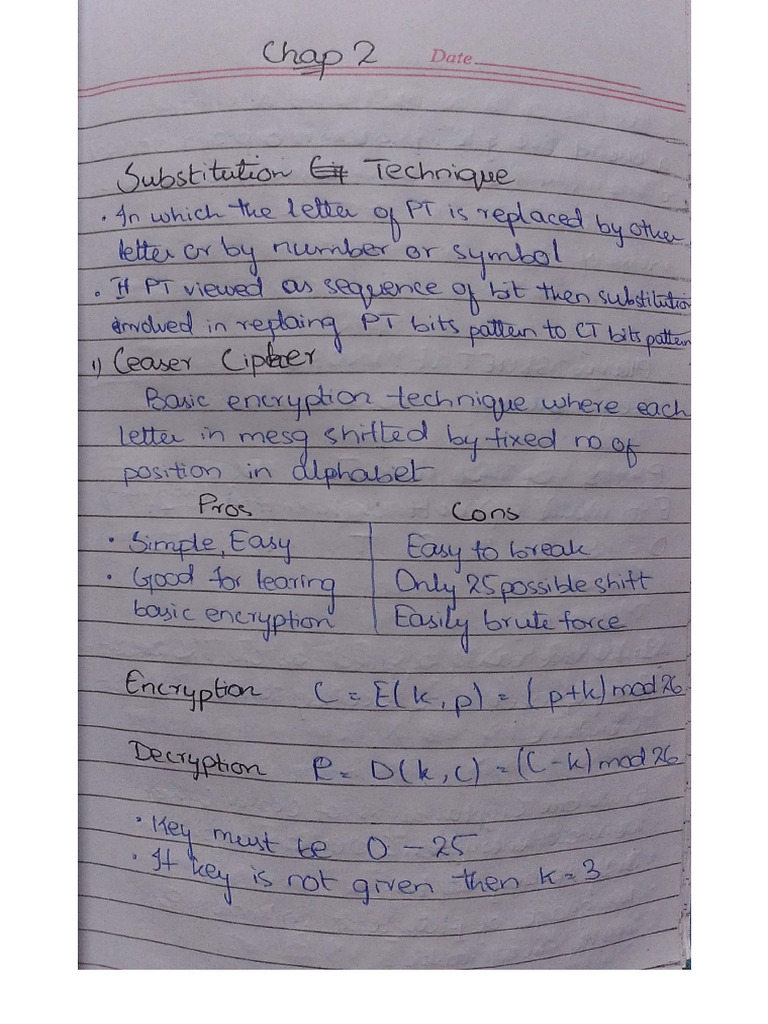 Chap 2 Date
Substitution Technique
· In which the letter of PT is replaced by other
letter or by number or symbol
· If PT viewed as sequence of bit then substitution
involved in replaing PT bits pattern to CT bits pattern
1) Ceaser Cipher
Basic encryption technique where each
letter in mesg shifted by fixed no of
position in alphabet
Pros Cons
· Simple, Easy Easy to break
· Good for learing Only 25 possible shift
basic encryption Easily brute force
Encryption C = E(k, p) = (p+k) mod 26
Decryption P = D(k, c) = (C-k) mod 26
· Key must be 0 - 25
· If key is not given then k = 3